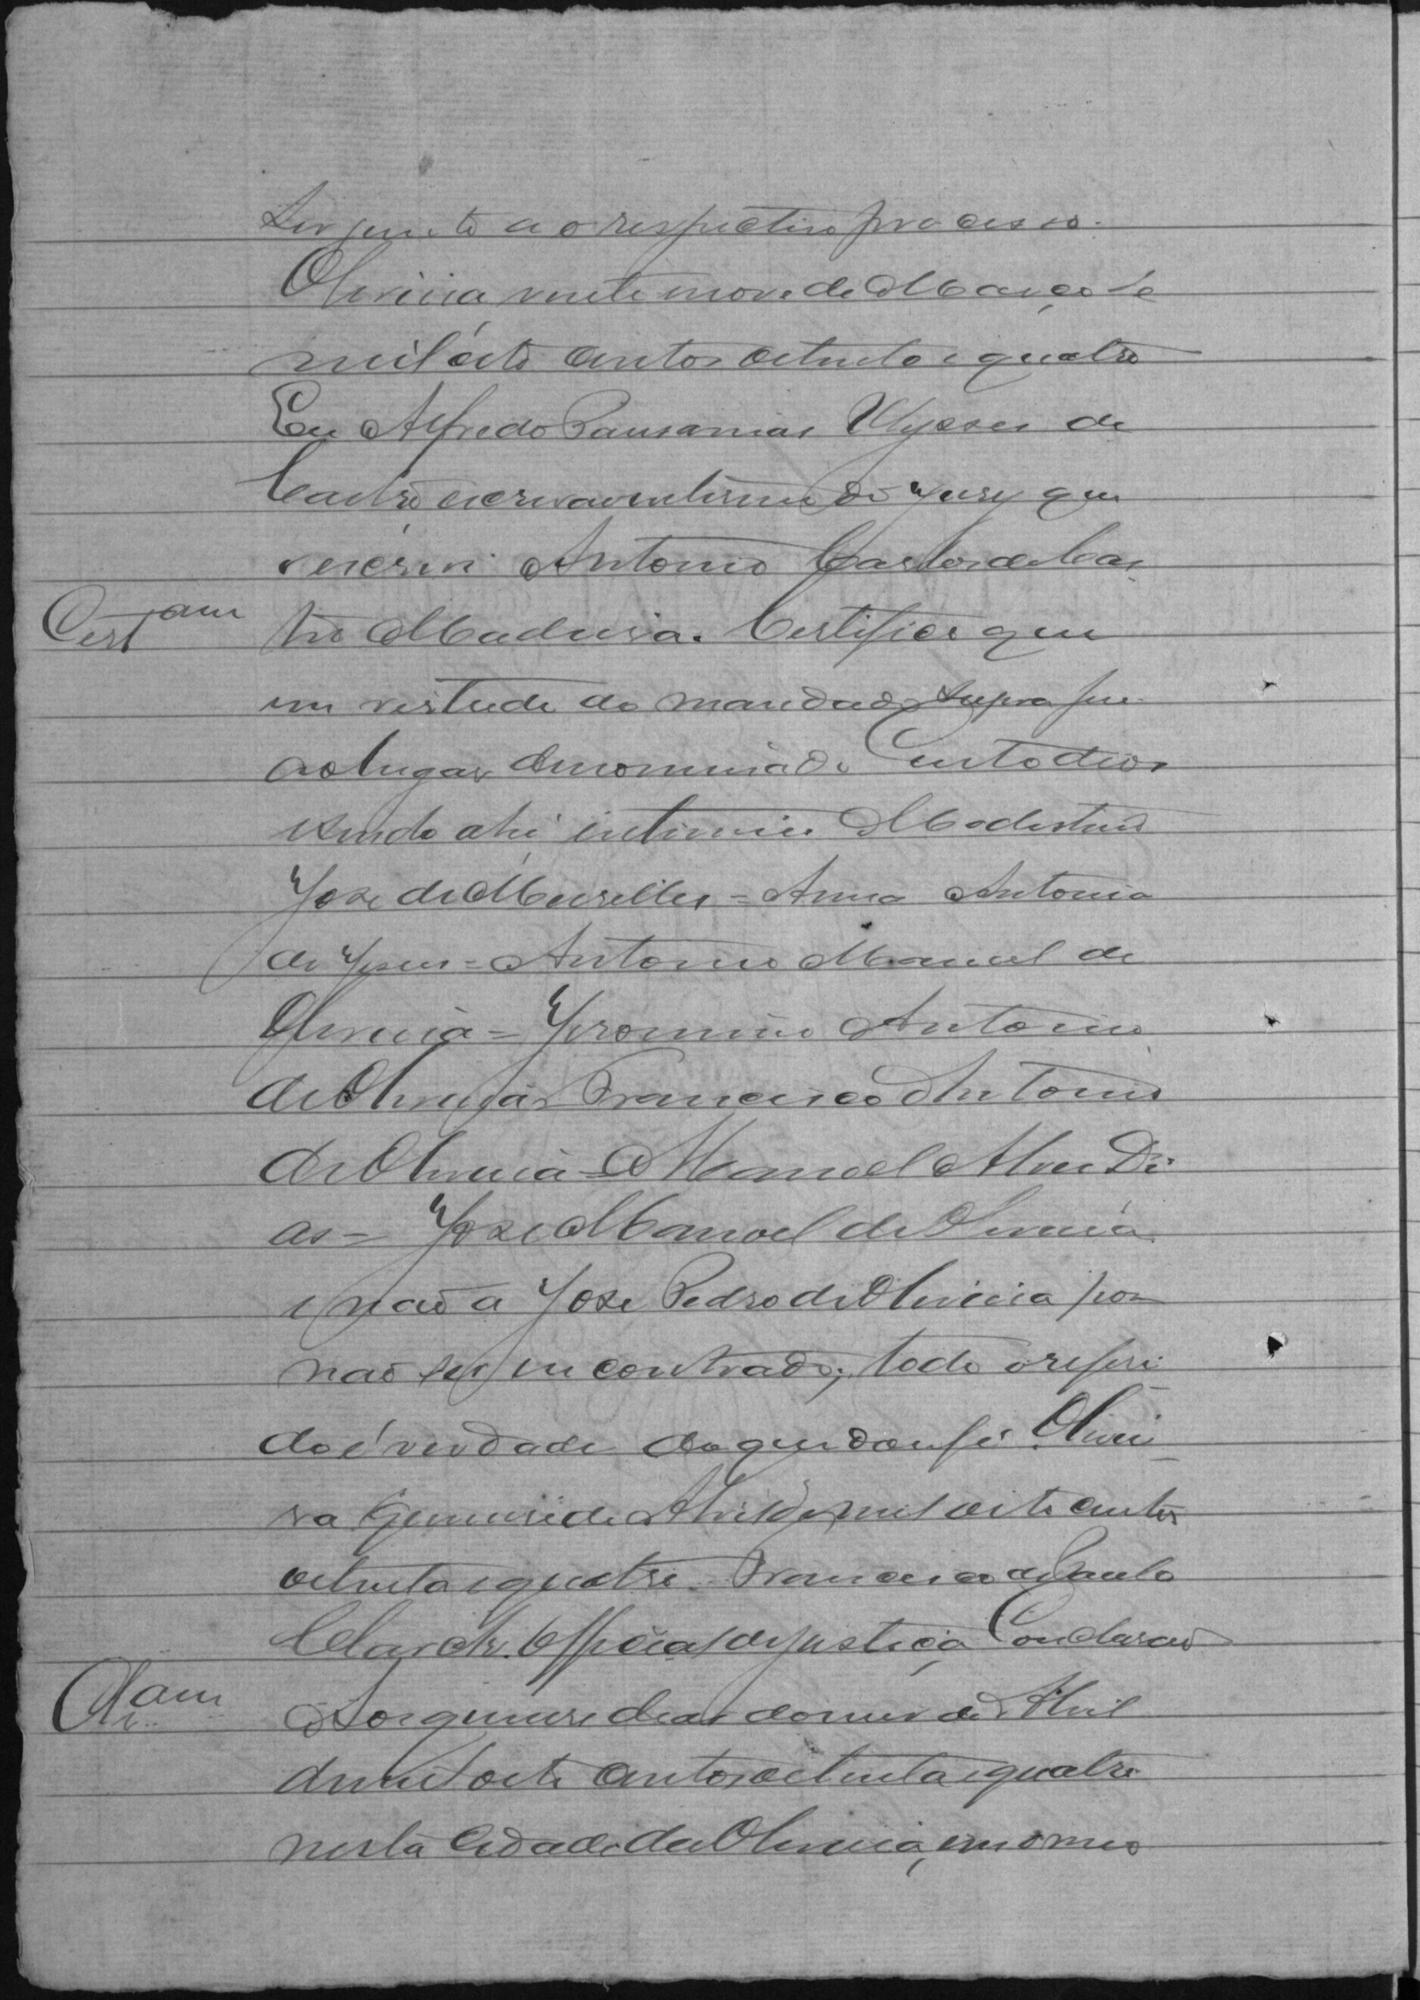 ser junto ao respectivo processo.
Oliveira vinte nove de Março de
mil oito centos oitenta e quatro
Eu Alfredo Pausanias Ulyses de
Castro escrivão interino do Jury que
o escrevi. Antonio Carlos de Cas
Certam
tro Madeira. Certifico que
em virtude do mandado supra fui
ao lugar denominado Custodios
e sendo ahi intimei Modestino
José de Meirelles = Anna Antonia
de Jesus = Antonio Manoel de
Oliveira = Jeronimo Antonio
de Oliveira = Francisco Antonio
de Oliveira = Manoel Alves Di
as = José Manoel de Oliveira
e não a José Pedro de Oliveira por
não ser encontrado; todo o referi
do é verdade do que dou fé. Olivei
ra quinze de Abril de mil oito centos
oitenta e quatro. Francisco de Paula
Official de justiça Conclusão
Clsam
Aos quinze dias do mez de Abril
de mil oito centos oitenta e quatro
nesta Cidade de Oliveira, em o meo